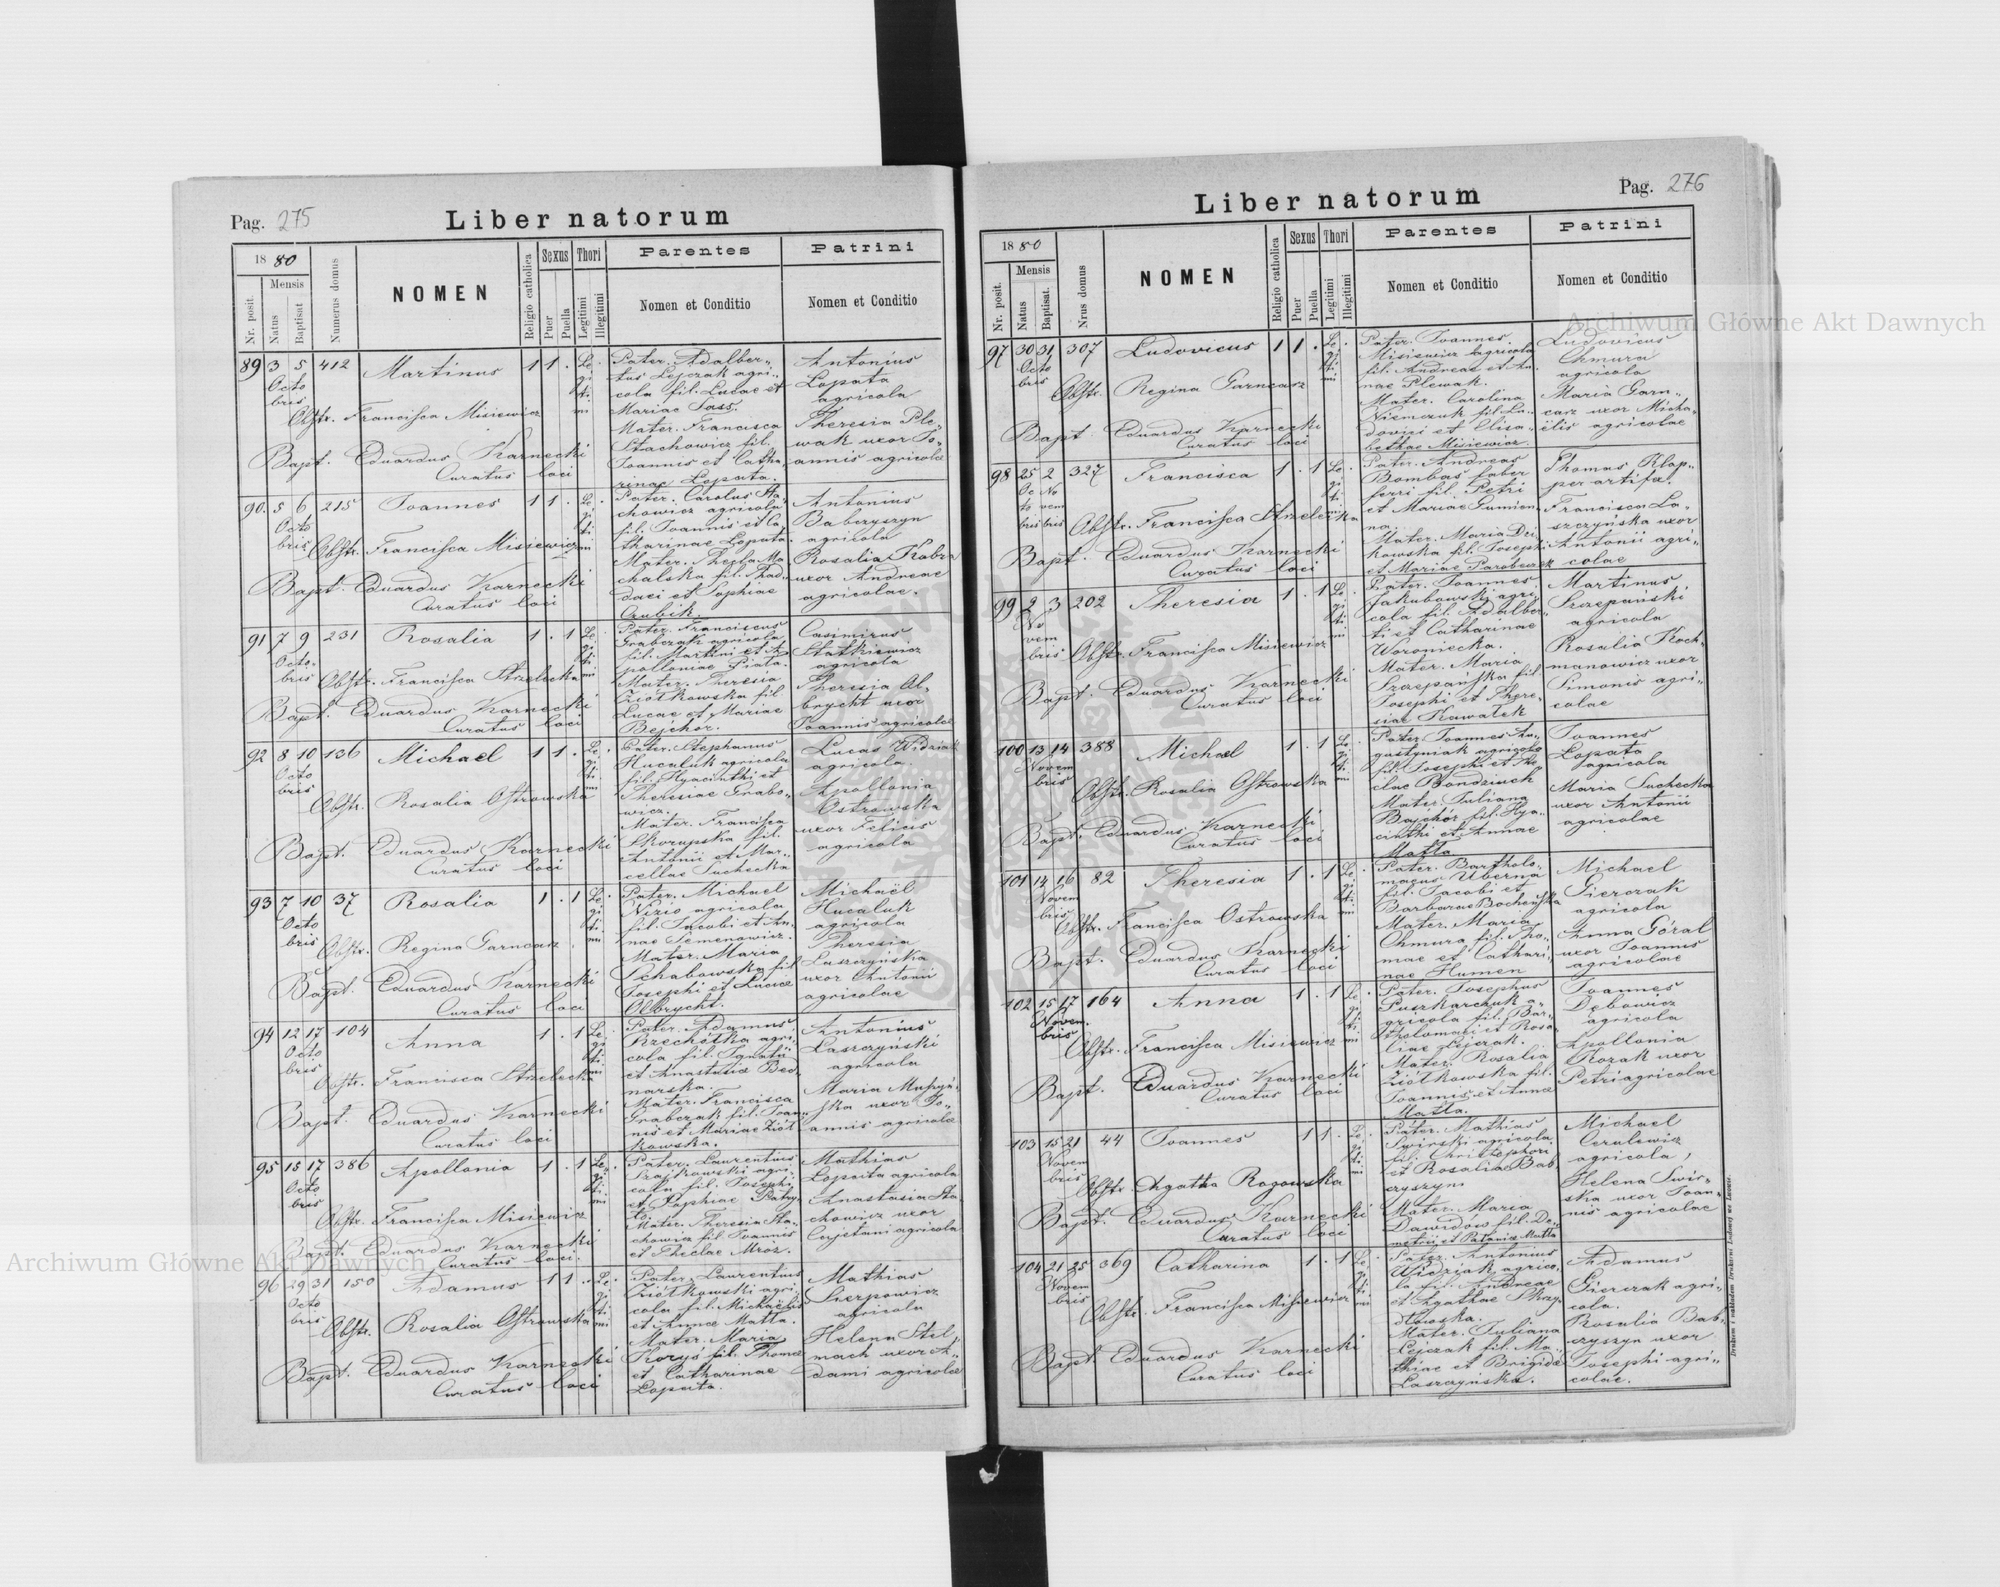 Pag. 275
Liber natorum
18 80
Nr. posit.
Mensis
Natus
Baptisat
Numerus domus
NOMEN
Religio catholica
Sexus
Puer
Puella
Thori
Legitimi
Illegitimi
Parentes
Nomen et Conditio
Patrini
Nomen et Conditio
89 3 5 412 Martinus 1 1 .
Octo
bris
Obstr. Francisca Misiewicz
Bapt. Eduardus Karnecki
Curatus loci
Le
gi
ti
mi
Pater. Adalber-
tus Lejczak agri-
cola fil. Lucae et
Mariae Sass.
Mater. Francisca
Stachowicz fil.
Joannis et Catha-
rinae Lopata.
Antonius
Lopata
agricola
Theresia Ple-
wak uxor Jo-
annis agricolae
90. 5 6 215 Joannes 1 1 .
Octo
bris
Obstr. Francisca Misiewicz
Bapt. Eduardus Karnecki
Curatus loci
Le
gi
ti
mi
Pater. Carolus Sta-
chowicz agricola
fil. Joannis et Ca-
tharinae Lopata.
Mater. Thecla Ma
chalska fil. Thad-
daei et Sophiae
Czubik.
Antonius
Babczyszyn
agricola
Rosalia
uxor Andreae
agricolae.
91 7 9 231 Rosalia 1 . 1
Octo-
bris
Obstr. Francisca Strzelecka
Bapt. Eduardus Karnecki
Curatus loci
Le
gi
ti
mi
Pater. Franciscus
Grabczak agricola
fil. Martini et A-
polloniae Piata.
Mater. Theresia
Ziółkowska fil.
Lucae et Mariae
Bejchor.
Casimirus
Statkiewicz
agricola
Theresia Ol-
brycht uxor
Joannis agricolae
92 8 10 136 Michael 1 1 .
Octo
bris
Obstr. Rosalia Ostrowska
Bapt. Eduardus Karnecki
Curatus loci
Le
gi
ti
mi
Pater. Stephanus
Hucaluk agricola
fil. Hyacinthi et
Theresiae Grabo-
wicz.
Mater. Francisca
Skorupska fil.
Antonii et Mar-
cellae Suchecka
Lucas Widziak
agricola.
Apollonia
Ostrowska
uxor Felicis
agricola
93 7 10 37 Rosalia 1 . 1
Octo
bris
Obstr. Regina Garncarz
Bapt. Eduardus Karnecki
Curatus loci
Le
gi
ti
mi
Pater. Michael
Nizio agricola
fil. Jacobi et An-
nae Semenowicz.
Mater. Maria
Schabowska fil
Josephi et Luciae
Olbrycht.
Michaël
Hucaluk
agricola
Theresia
Laszczyńska
uxor Antonii
agricolae
94 12 17 104 Anna 1 . 1
Octo
bris
Obstr. Francisca Strzelecka
Bapt. Eduardus Karnecki
Curatus loci
Le
gi
ti
mi
Pater. Adamus
Rzechótka agri-
cola fil. Ignatii
et Anastasiae Bed-
narska.
Mater. Francisca
Grabczak fil. Joan-
nis et Mariae Ziół
kowska.
Antonius
Laszczyński
agricola
Maria
ska uxor Jo-
annis agricolae
95 15 17 386 Apollonia 1 . 1
Octo
bris
Obstr. Francisca Misiewicz
Bapt. Eduardus Karnecki
Curatus loci.
Le
gi
ti
mi
Pater. Laurentius
agri-
cola fil. Josephi
et Sophiae
Mater. Theresia Sta-
chowicz fil. Joannis
et Theclae Mroz.
Mathias
Lopata agricola
Anastasia Sta
chowicz uxor
Cajetani agricola
96 29 31 150 Adamus 1 1 .
Octo
bris
Obstr. Rosalia Ostrowska
Bapt. Eduardus Karnecki
Curatus loci
Le
gi
ti
mi
Pater. Laurentius
Ziółkowski agri-
cola fil. Michaëlis
et Annae Matla.
Mater. Maria
fil. Thomae
et Catharinae
Lopata.
Mathias
Sierpowicz
agricola
Helena Stel-
mach uxor A-
dami agricolae
Pag. 276
Liber natorum
18 80
Nr. posit.
Mensis
Natus
Baptisat.
Nrus domus
NOMEN
Religio catholica
Sexus
Puer
Puella
Thori
Legitimi
Illegitimi
Parentes
Nomen et Conditio
Patrini
Nomen et Conditio
97 30 31 307 Ludovicus 1 1 .
Octo
bris
Obstr. Regina Garncarz
Bapt. Eduardus Karnecki
Curatus loci
Le
gi
ti
mi
Pater. Joannes
Misiewicz agricola
fil. Andreae et An-
nae Plewak.
Mater. Carolina
Niemczuk fil. Lu-
dovici et Elisa-
bethae Misiewicz.
Ludovicus
Chmura
agricola
Maria Garn-
carz uxor Micha-
ëlis agricolae
98 25 2 327 Francisca 1 . 1
Oc No
to vem
bris bris
Obstr. Francisca Strzelecka
Bapt. Eduardus Karnecki
Curatus loci
Le
gi
ti
mi
Pater. Andreas
Bombas faber
ferri fil. Petri
et Mariae Gumien-
na.
Mater. Maria Dzi-
kowska fil. Josephi
et Mariae Parobczak
Thomas Klap-
per artifex.
Francisca La-
szczyńska uxor
Antonii agri-
colae
99 2 3 202 Theresia 1 . 1
No
vem
bris
Obstr. Francisca Misiewicz
Bapt. Eduardus Karnecki
Curatus loci
Le
gi
ti
mi
Pater. Joannes
Jakubowski agri-
cola fil. Adalber-
ti et Catharinae
Woroniecka.
Mater. Maria
Szczepańska fil.
Josephi et There-
siae Kawałek
Martinus
Szczepański
agricola
Rosalia Koch-
manowicz uxor
Simonis agri-
colae
100 13 14 388 Michael 1 . 1
Novem
bris
Obstr. Rosalia Ostrowska
Bapt. Eduardus Karnecki
Curatus loci
Le
gi
ti
mi
Pater. Joannes Au-
gustyniak agricola
fil. Josephi et The-
clae Bondziuch
Mater. Juliana
Bajchór fil. Hya-
cinthi et Annae
Matla
Joannes
Lopata
agricola
Maria Suchecka
uxor Antonii
agricolae
101 14 16 82 Theresia 1 . 1
Novem
bris
Obstr. Francisca Ostrowska
Bapt. Eduardus Karnecki
Curatus loci
Le
gi
ti
mi
Pater. Bartholo-
maeus Uberna
fil. Jacobi et
Barbarae Bocheńska
Mater. Maria
Chmura fil. Tho-
mae et Cathari-
nae Humen
Michael
Pierczak
agricola
Anna Góral
uxor Joannis
agricolae
102 15 17 164 Anna 1 . 1
Novem.
bris
Obstr. Francisca Misiewicz
Bapt. Eduardus Karnecki
Curatus loci
Le
gi
ti
mi
Pater. Josephus
Puszkarczuk a-
gricola fil. Bar-
tholomaei et Rosa-
liae Lejczak.
Mater. Rosalia
Ziółkowska fil.
Joannis et Annae
Matla.
Joannes
Dębowicz
agricola
Apollonia
Kozak uxor
Petri agricolae
103 15 21 44 Joannes 1 1 .
Novem
bris
Obstr. Agatha Rogowska
Bapt. Eduardus Karnecki
Curatus loci
Le
gi
ti
mi
Pater. Mathias
Swirski agricola
fil. Christophori
et Rosaliae Bab-
czyszyn
Mater. Maria
Dawidów fil. De-
metrii et Matla
Michael
Cerulewicz
agricola,
Helena Swir-
ska uxor Joan-
nis agricolae
104 21 25 369 Catharina 1 . 1
Novem
bris
Obstr. Francisca Misiewicz
Bapt. Eduardus Karnecki
Curatus loci
Le
gi
ti
mi
Pater. Antonius
Widziak agrico-
la fil. Andreae
et Agathae
Mater. Juliana
Lejczak fil. Ma-
thiae et Brigidae
Laszczyńska.
Adamus
Pierczak agri-
cola.
Rosalia Bab-
czyszyn uxor
Josephi agri-
colae.
Drukiem i nakładem Drukarni Ludowej we Lwowie.
Archiwum Główne Akt Dawnych
Archiwum Główne Akt Dawnych